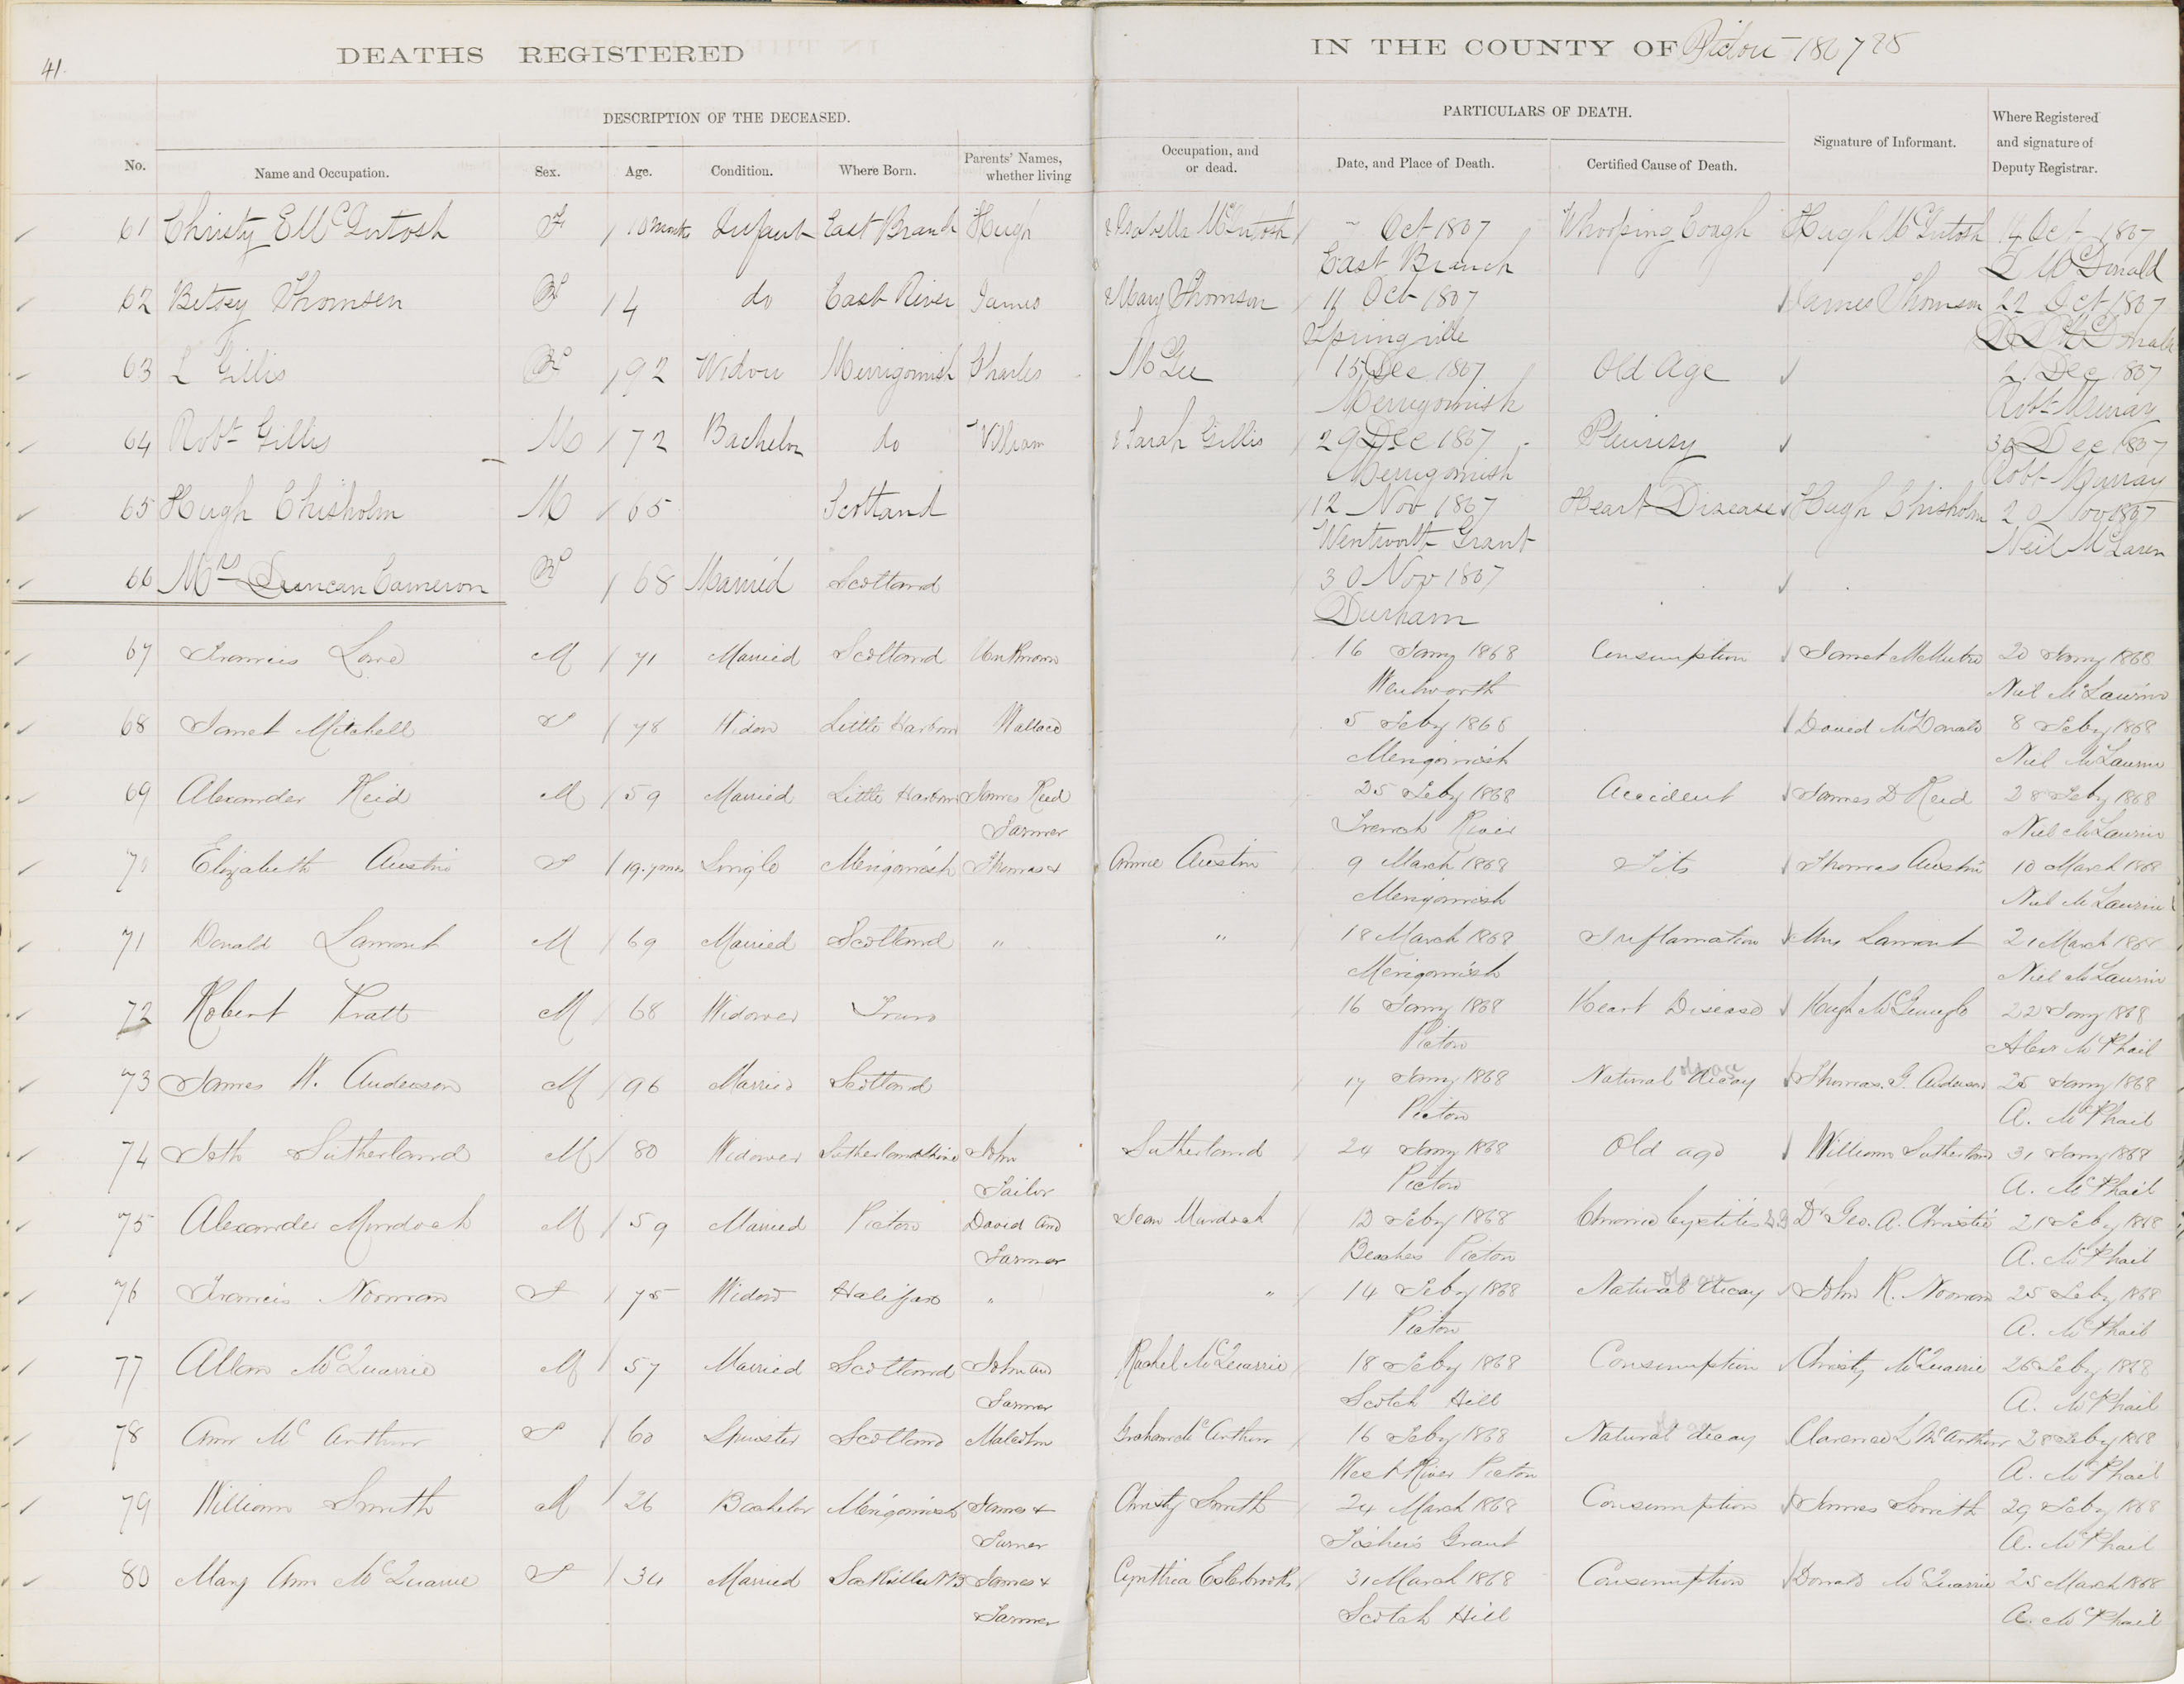 41.
DEATHS REGISTERED IN THE COUNTY OF Pictou - 1867 & 8
DESCRIPTION OF THE DECEASED. PARTICULARS OF DEATH.
No. Name and Occupation. Sex. Age. Condition. Where Born. Parents' Names, whether living Occupation, and or dead. Date, and Place of Death. Certified Cause of Death. Signature of Informant. Where Registered and signature of Deputy Registrar.
61 Christy E McIntosh F 10 months Infant East Branch Hugh & Isabella McIntosh - Oct 1867 Whooping Cough Hugh McIntosh 14 Oct 1867
East Branch D McDonald
62 Betsey Thomson F 4 do East River James & Mary Thomson 11 Oct 1867 James Thomson 22 Oct 1867
Springville D McDonald
63 L Gillis F 92 Widow Merrigomish Charles McGee 15 Dec 1867 Old Age 21 Dec 1867
Merrigomish Robt Murray
64 Robt Gillis M 72 Bachelor do William & Sarah Gillis 29 Dec 1867 Pleurisy 30 Dec 1867
Merrigomish Robt Murray
65 Hugh Chisholm M 65 Scotland 12 Nov 1867 Heart Disease Hugh Chisholm 20 Nov 1867
Wentworth Grant Neil McLaren
66 Mrs Duncan Cameron F 68 Married Scotland 30 Nov 1867
Durham
67 Francis Lowe M 71 Married Scotland Unknown 16 Jany 1868 Consumption Janet 20 Jany 1868
Wentworth Niel McLaurin
68 Janet Mitchell F 78 Widow Little Harbour Wallace 5 Feby 1868 David McDonald 8 Feby 1868
Merigomish Niel McLaurin
69 Alexander Reid M 59 Married Little Harbour James Reid 25 Feby 1868 Accident James D Reid 28 Feby 1868
Farmer French River Niel McLaurin
70 Elizabeth Austin F 19 years Single Merigomish Thomas & Annie Austin 9 March 1868 Fits Thomas Austin 10 March 1868
Merigomish Niel McLaurin
71 Donald Lamont M 69 Married Scotland " " 18 March 1868 Inflamation Mrs Lamont 21 March 1868
Merigomish Niel McLaurin
72 Robert Pratt M 68 Widower Truro 16 Jany 1868 Heart Disease Hugh 22 Jany 1868
Pictou Alexr McPhail
73 James W. Anderson M 96 Married Scotland 17 Jany 1868 Natural decay old age Thomas. G. Anderson 25 Jany 1868
Pictou A. McPhail
74 Seth Sutherland M 80 Widower Sutherlandshire John Sutherland 24 Jany 1868 Old age William Sutherland 31 Jany 1868
Tailor Pictou A. McPhail
75 Alexander Murdoch M 59 Married Pictou David and Jean Murdoch 12 Feby 1868 Chronic Cystitis Dr Geo. A. Christie 21 Feby 1868
Farmer Beaches Pictou A. McPhail
76 Francis Norman F 75 Widow Halifax " " 14 Feby 1868 Natural decay old age John R. Norman 25 Feby 1868
Pictou A. McPhail
77 Allan McQuarrie M 57 Married Scotland John and Rachel McQuarrie 18 Feby 1868 Consumption Christy McQuarrie 26 Feby 1868
Farmer Scotch Hill A. McPhail
78 Ann McArthur F 60 Spinster Scotland Malcolm Graham McArthur 16 Feby 1868 Natural decay old age Clarence L McArthur 28 Feby 1868
West River Pictou A. McPhail
79 William Smith M 26 Bachelor Merigomish James & Christy Smith 24 March 1868 Consumption James Smith 29 Feby 1868
Farmer Fisher's Grant A. McPhail
80 Mary Ann McQuarrie F 34 Married Sackville NB James & Cynthia Esterbrooks 31 March 1868 Consumption Donald McQuarrie 25 March 1868
Farmer Scotch Hill A. McPhail